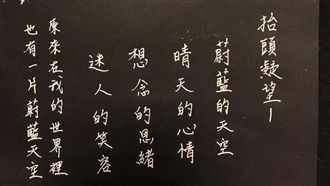 抬頭疑望—
蔚藍的天空
晴天的心情
想念的思緒
迷人的笑容
原來在我的世界裡
也有一片蔚藍天空